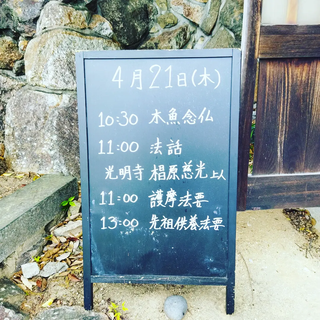 4月21日(木)
10:30 木魚念仏
11:00 法話
光明寺 椙原慈光上人
11:00 護摩法要
13:00 先祖供養法要